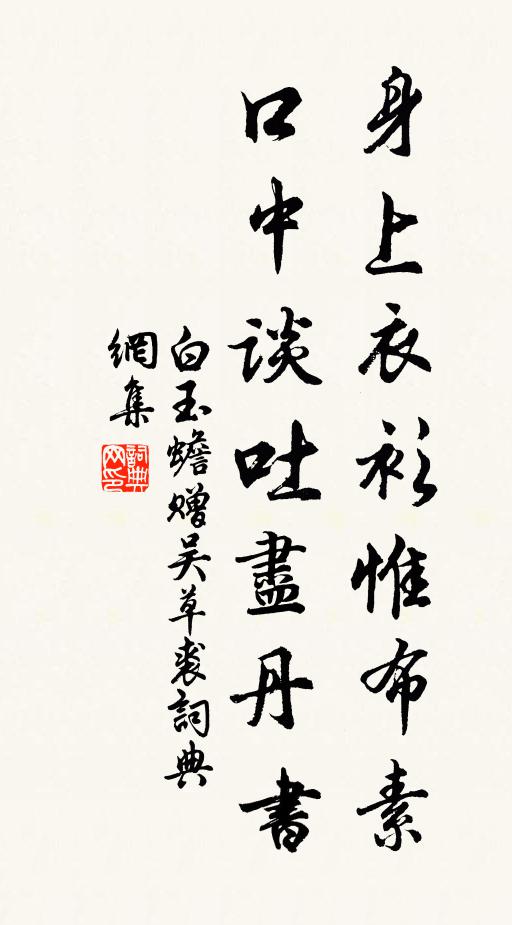 身上衣衫惟布素
口中談吐盡丹書
白玉蟾贈吴草裘詞典
網集
詞典
网印